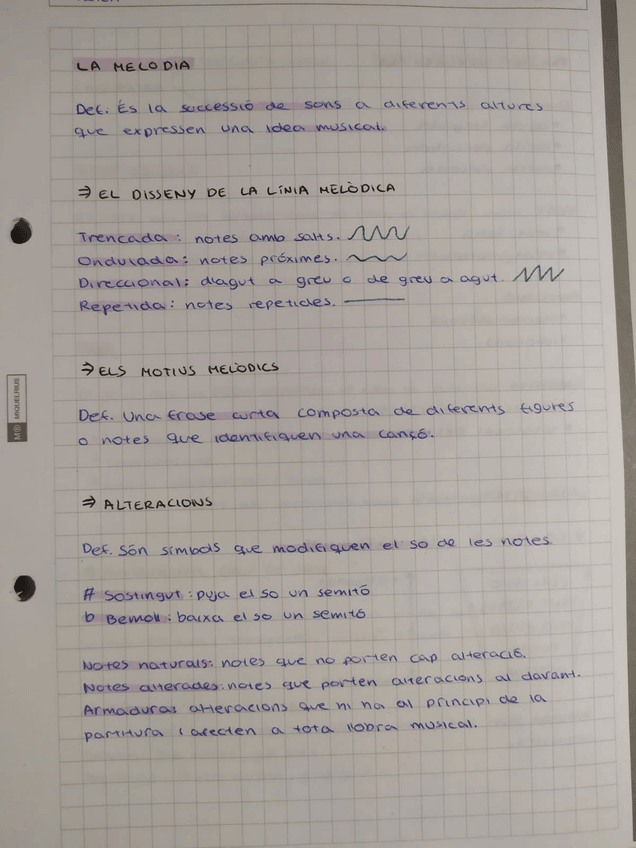 LA MELODIA
Def. És la successió de sons a diferents altures
que expressen una idea musical.
⇒ EL DISSENY DE LA LÍNIA MELÒDICA
Trencada: notes amb salts.
Ondulada: notes próximes.
Direccional: d'agut a greu o de greu a agut.
Repetida: notes repetides.
⇒ ELS MOTIUS MELÒDICS
Def. Una frase curta composta de diferents figures
o notes que identifiquen una cançó.
⇒ ALTERACIONS
Def. Són símbols que modifiquen el so de les notes
# Sostingut: puja el so un semitó
b Bemoll: baixa el so un semitó
Notes naturals: notes que no porten cap alteració.
Notes alterades: notes que porten alteracions al davant.
Armadura: alteracions que hi ha al principi de la
partitura i afecten a tota l'obra musical.
MIQUELRIUS